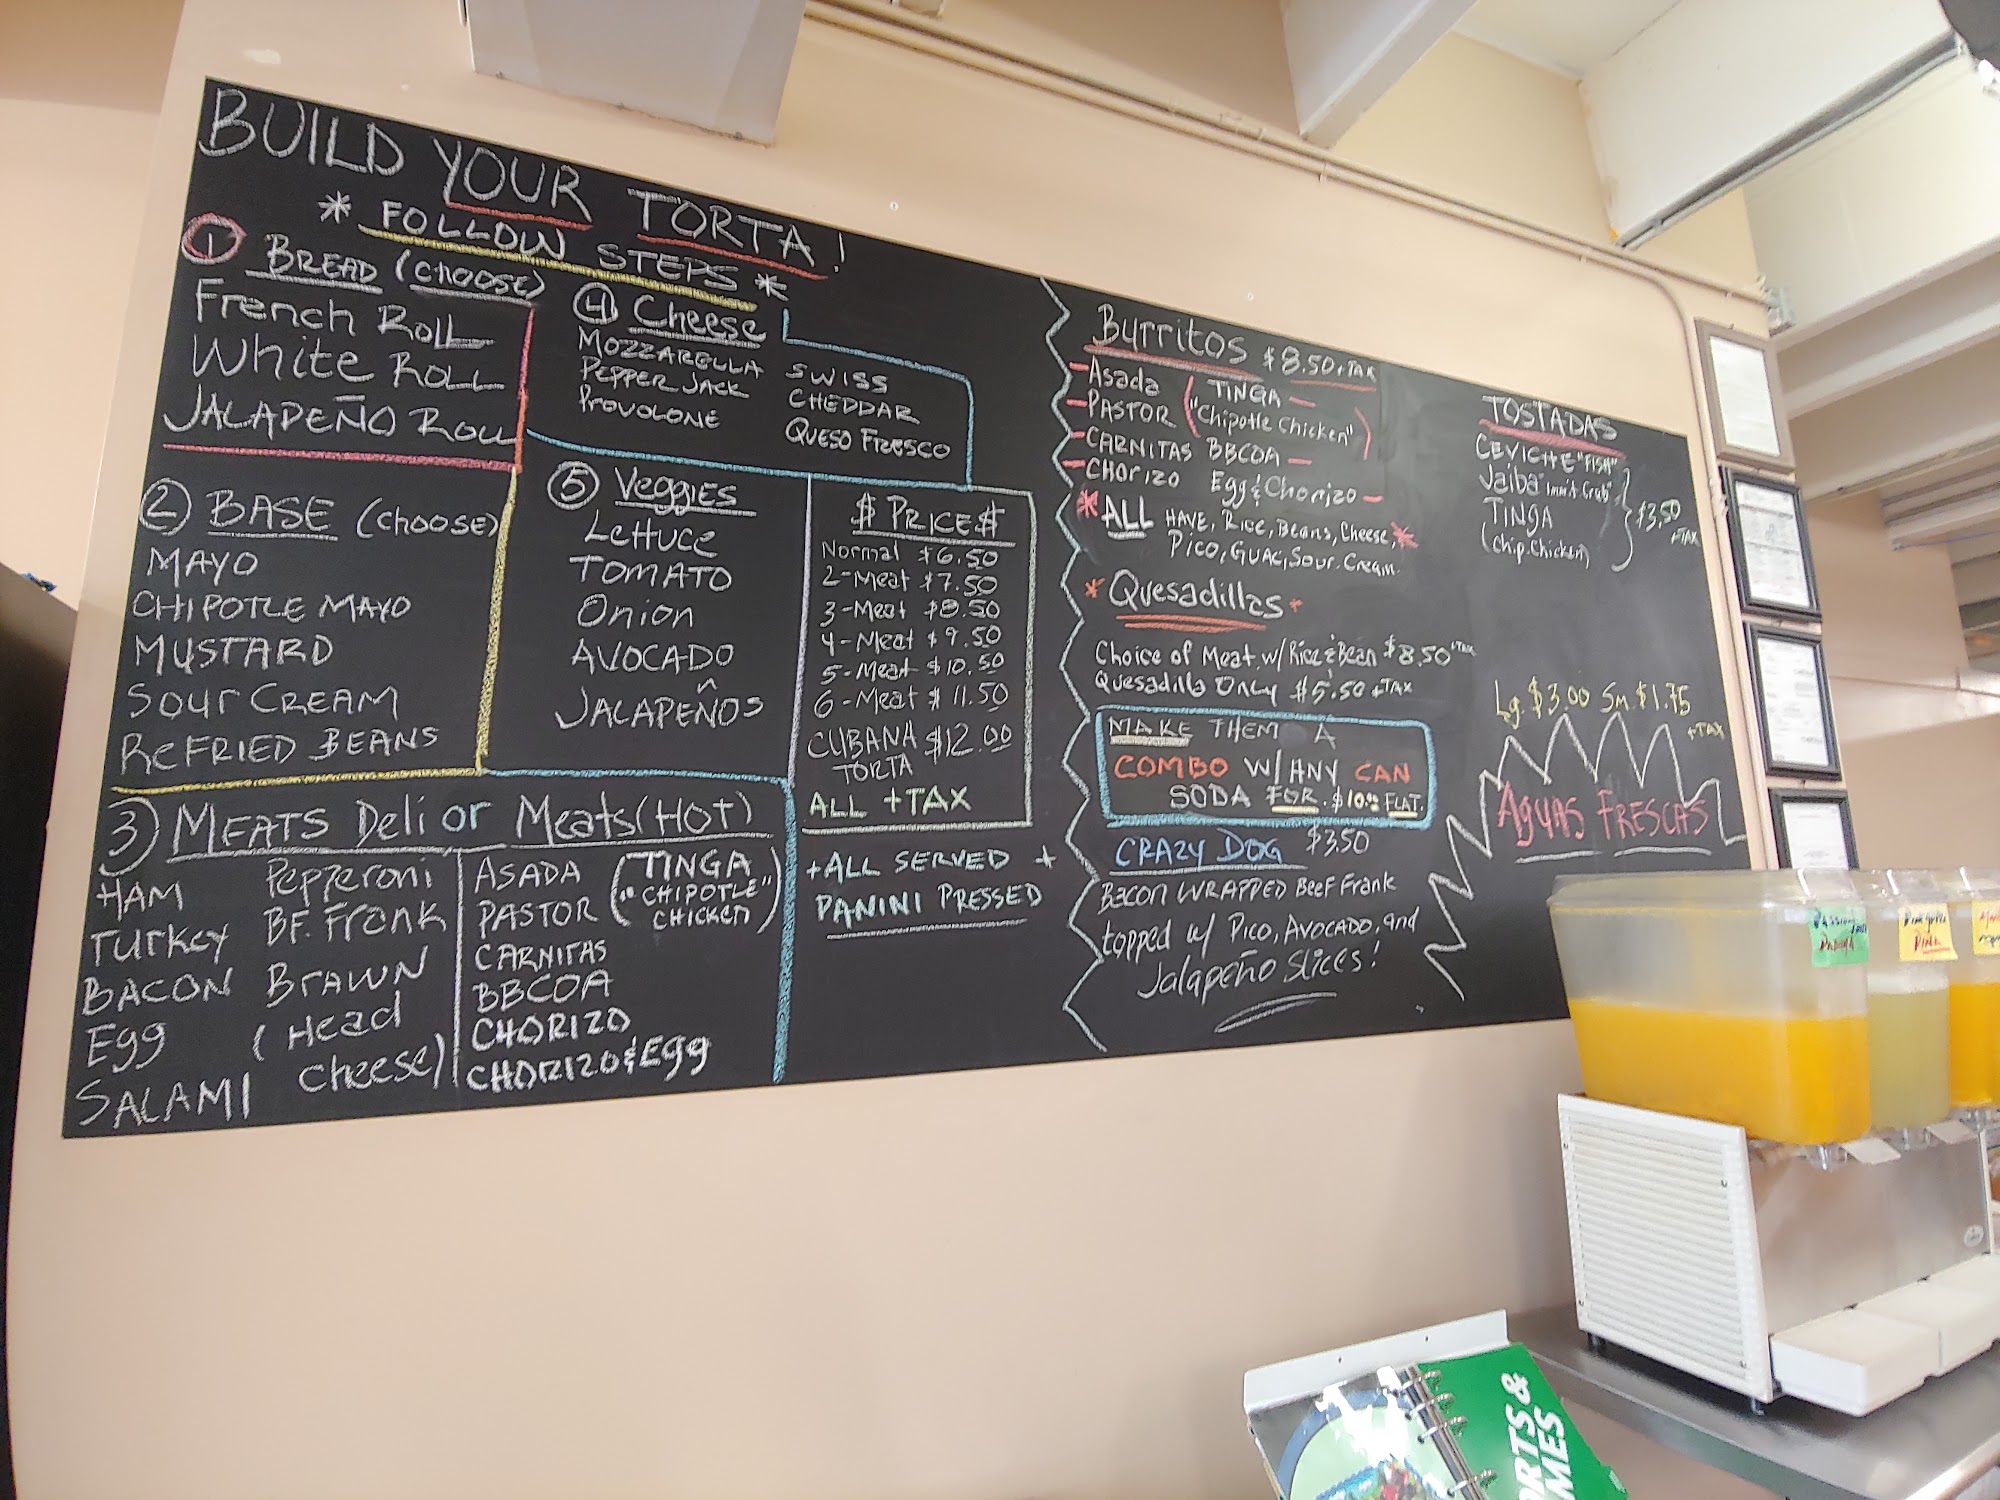 BUILD YOUR TORTA!
* FOLLOW STEPS *
1 BREAD (CHOOSE)
French Roll
White Roll
JALAPEÑO Roll
2 BASE (CHOOSE)
MAYO
CHIPOTLE MAYO
MUSTARD
SOUR CREAM
REFRIED BEANS
3 MEATS Deli or Meats (HOT)
HAM
TURKEY
BACON
Egg
SALAMI
Pepperoni
BF. Frank
BRAWN
(Head
cheese)
ASADA
PASTOR
CARNITAS
BBCOA
CHORIZO
CHORIZO & Egg
(TINGA
"CHIPOTLE"
CHICKEN)
4 Cheese
MOZZARELLA
PEPPER JACK
PROVOLONE
SWISS
CHEDDAR
QUESO FRESCO
5 Veggies
Lettuce
TOMATO
Onion
AVOCADO
JALAPEÑOS
$ PRICE $
Normal $6.50
2-Meat $7.50
3-Meat $8.50
4-Meat $9.50
5-Meat $10.50
6-Meat $11.50
CUBANA $12.00
TORTA
ALL + TAX
+ ALL SERVED +
PANINI PRESSED
Burritos $8.50 + TAX
- Asada
- PASTOR
- CARNITAS
- CHORIZO
TINGA -
("Chipotle Chicken")
BBCOA -
Egg & Chorizo -
* ALL HAVE, Rice, Beans, Cheese, *
Pico, Guac, Sour. Cream.
* Quesadillas *
Choice of Meat w/ Rice & Bean $8.50 + TAX
Quesadilla Only $5.50 + TAX
MAKE THEM A
COMBO W/ ANY CAN
SODA FOR $10.00 FLAT.
CRAZY DOG $3.50
Bacon WRAPPED Beef Frank
topped w/ Pico, Avocado, and
Jalapeño Slices!
TOSTADAS
CEVICHE "FISH"
Jaiba "Imit. Crab"
TINGA
(Chip. Chicken)
$3.50
+ TAX
Lg. $3.00 Sm $1.75
+ TAX
AGUAS FRESCAS
PAPAYA
PINK